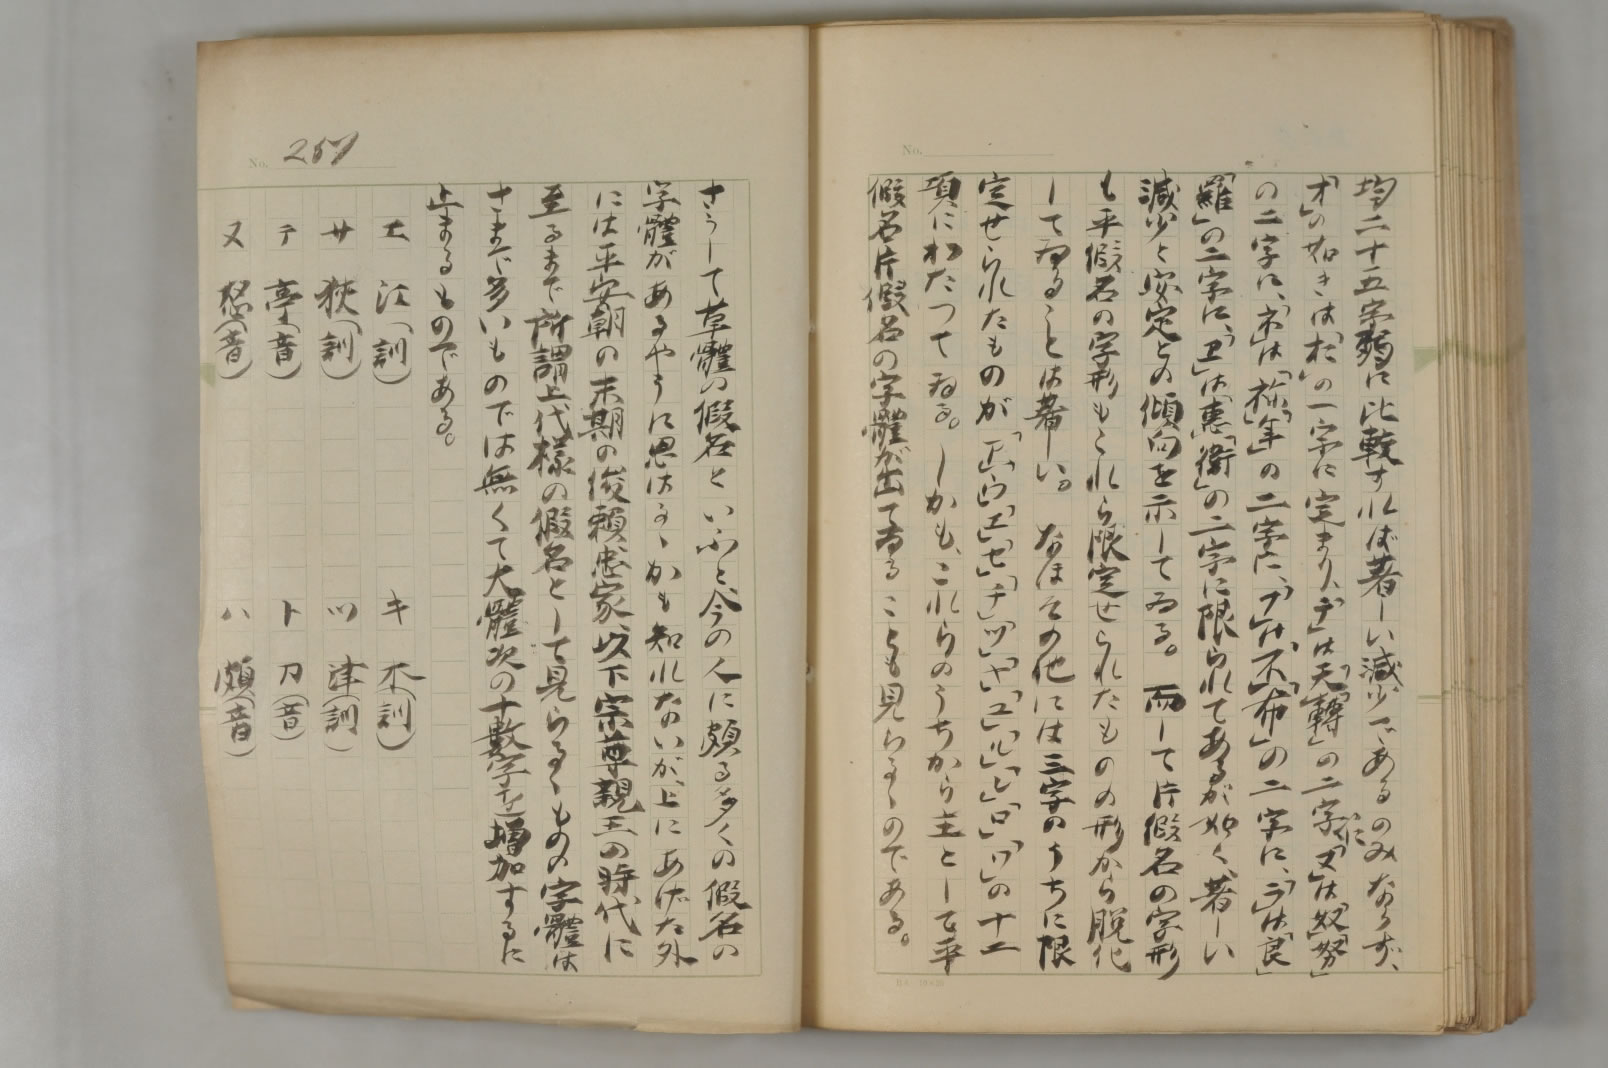 No.
均二十五字弱に比較すれば著しい減少であるのみならず、
「オ」の如きは「於」の一字に定まり、「テ」は「天」「轉」の二字に、「ヌ」は「奴」「努」
の二字に、「ネ」は「祢」「年」の二字に、「フ」は「不」「布」の二字に、「ラ」は「良」
「羅」の二字に、「ヱ」は「惠」「衞」の二字に限られてあるが如く、著しい
減少と安定との傾向を示してゐる。而して片假名の字形
も平假名の字形もこれら限定せられたものの形から脱化
してゐることは著しい。なほその他には三字のうちに限
定せられたものが
の十二
項にわたつてゐる。しかも、これらのうちから主として平
假名片假名の字體が出てゐることも見らるゝのである。
No. 257
さうして草體の假名といふと、今の人に頗る多くの假名の
字體があるやうに思はるゝかも知れないが、上にあげた外
には平安朝の末期の俊賴忠家、以下宗尊親王の時代に
至るまで所謂上代樣の假名として見らるゝものの字體は
さまで多いものでは無くて大體次の十數字を増加するに
止まるものである。
エ 江(訓) キ 木(訓)
サ 狹(訓) ツ 津(訓)
テ 亭(音) ト 刀(音)
ヌ 怒(音) ハ 頗(音)